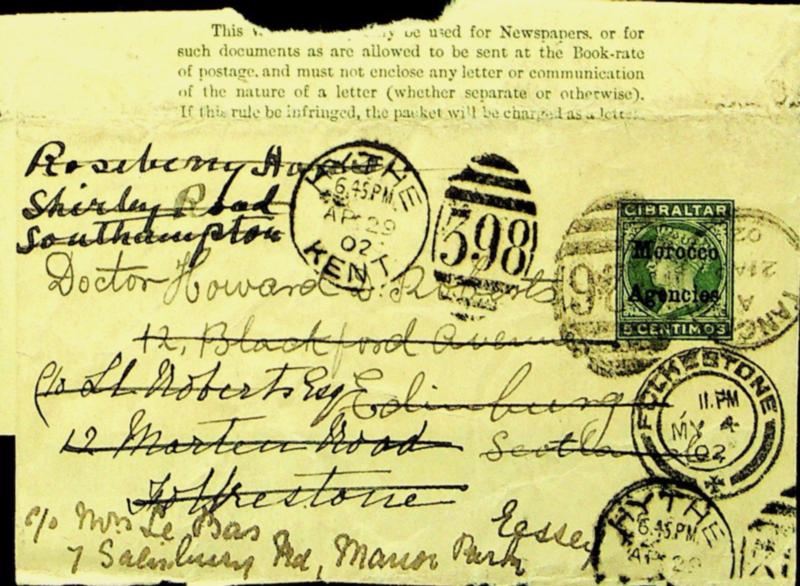 This be used for Newspapers, or for
such documents as are allowed to be sent at the Book-rate
of postage, and must not enclose any letter or communication
of the nature of a letter (whether separate or otherwise).
If this rule be infringed, the packet will be charged as a letter.
Roseberry House
Shirley Road
Southampton
HYTHE
6.45PM
AP 29
02
KENT
398
GIBRALTAR
Morocco
Agencies
5 CENTIMOS
Doctor Howard Roberts
12, Blackford Avenue
Edinburg
Scotland
c/o Lt Roberts Esq
12 Morten Road
Folkestone
FOLKESTONE
11.PM
MY 4
02
c/o Mrs Le Bas
7 Salisbury Rd, Manor Park
Essex
HYTHE
6.45PM
AP 29